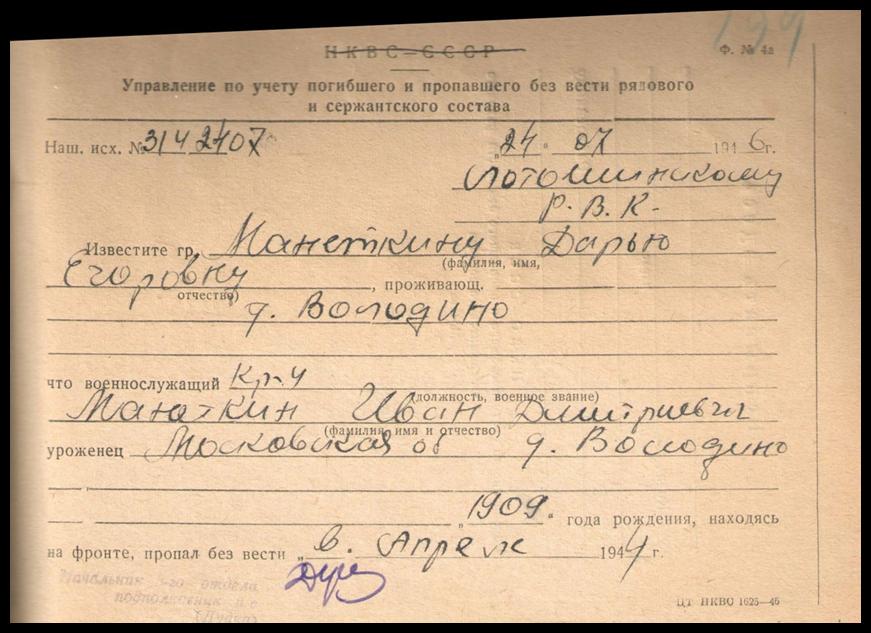 НКВС-СССР
Ф. № 4а
199
Управление по учету погибшего и пропавшего без вести рядового
и сержантского состава
Наш. исх. № 3142407 „24“ 07 1946г.
Лотошинскому
Р.В.К-
Известите гр. Манеткину Дарью
(фамилия, имя,
Егоровну, проживающ.
отчество)
д. Володино
что военнослужащий Кр-ц
(должность, военное звание)
Манаткин Иван Дмитриевич
(фамилия, имя и отчество)
уроженец Московская об д. Володино
„1909“ года рождения, находясь
на фронте, пропал без вести „в. Апреле 1944г.
Начальник отдела
подполковник
ЦТ НКВС 1625—46